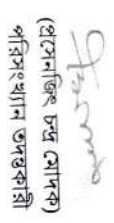 (প্রসেনজিৎ চন্দ্র মোদক)
পরিসংখ্যান তদন্তকারী